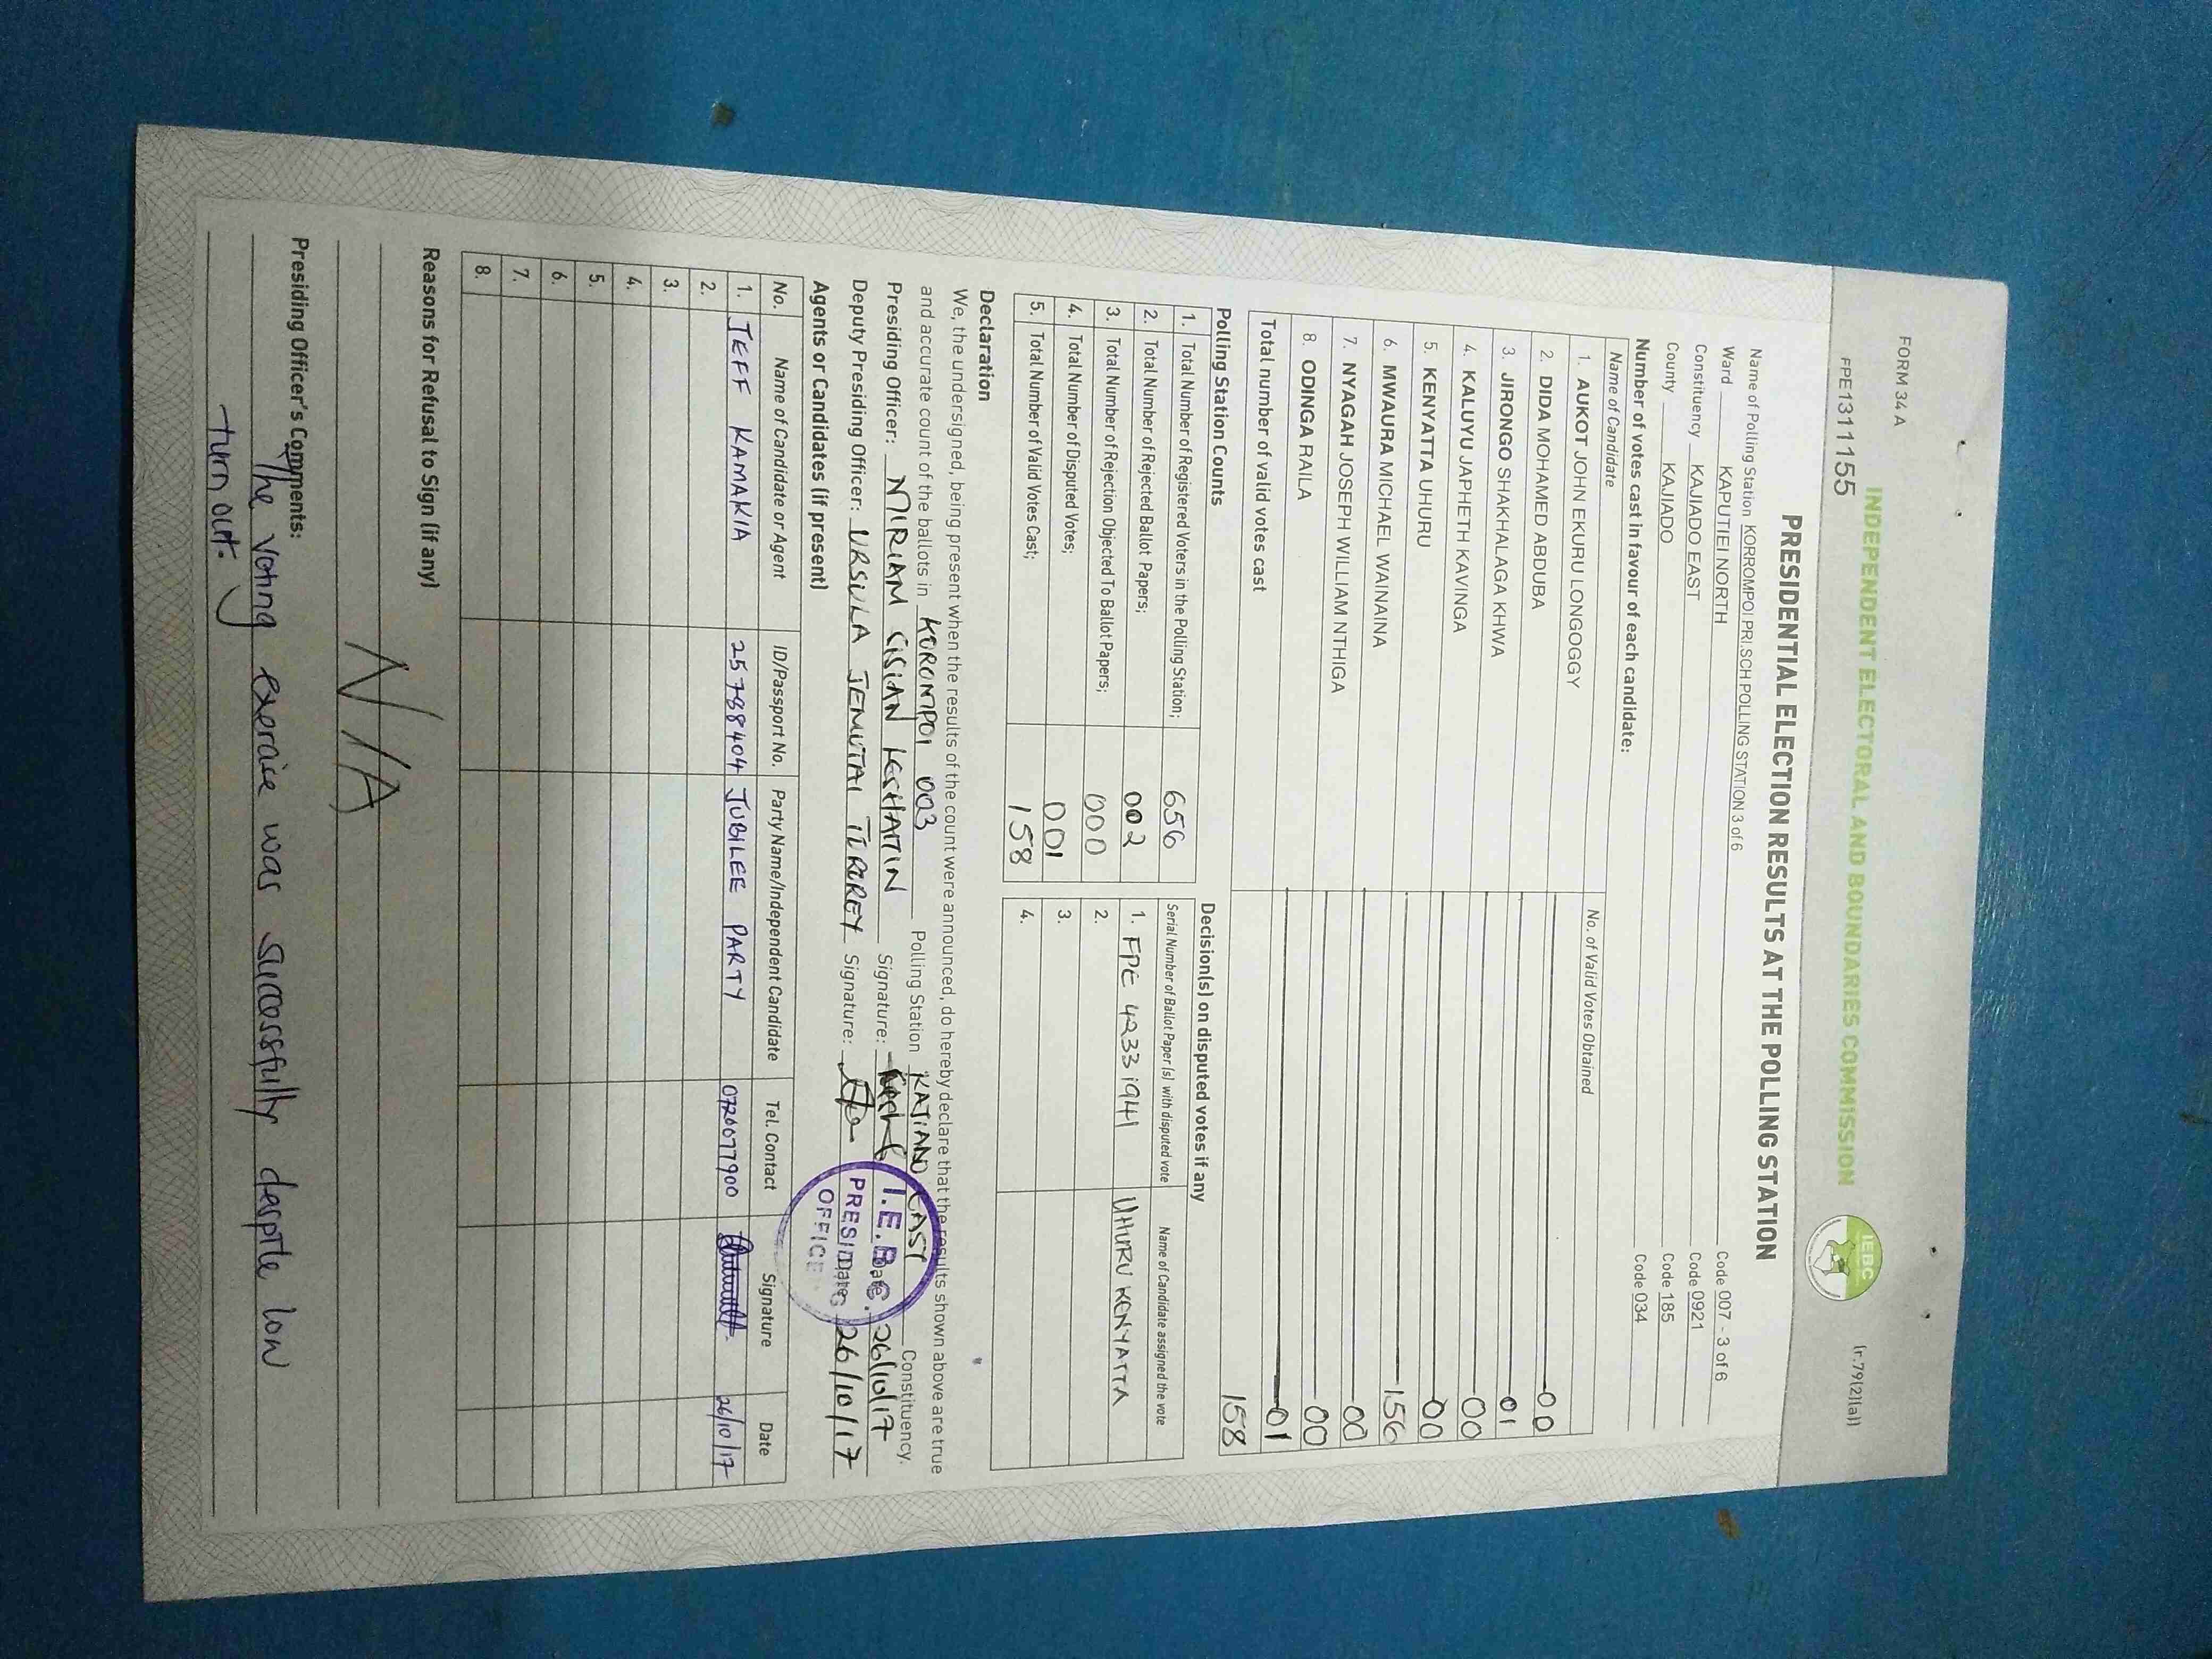 FORM 34 A
(r.79(2)(a))
FPE1311155
INDEPENDENT ELECTORAL AND BOUNDARIES COMMISSION
IEBC
PRESIDENTIAL ELECTION RESULTS AT THE POLLING STATION
Name of Polling Station KORROMPOI PRI.SCH POLLING STATION 3 of 6 Code 007 - 3 of 6
Ward KAPUTIEI NORTH Code 0921
Constituency KAJIADO EAST Code 185
County KAJIADO Code 034
Number of votes cast in favour of each candidate:
Name of Candidate No. of Valid Votes Obtained
1. AUKOT JOHN EKURU LONGOGGY 00
2. DIDA MOHAMED ABDUBA 01
3. JIRONGO SHAKHALAGA KHWA 00
4. KALUYU JAPHETH KAVINGA 00
5. KENYATTA UHURU 156
6. MWAURA MICHAEL WAINAINA 00
7. NYAGAH JOSEPH WILLIAM NTHIGA 00
8. ODINGA RAILA 01
Total number of valid votes cast 158
Polling Station Counts
1. Total Number of Registered Voters in the Polling Station; 656
2. Total Number of Rejected Ballot Papers; 002
3. Total Number of Rejection Objected To Ballot Papers; 000
4. Total Number of Disputed Votes; 001
5. Total Number of Valid Votes Cast; 158
Decision(s) on disputed votes if any
Serial Number of Ballot Paper (s) with disputed vote Name of Candidate assigned the vote
1. FPE 42331941 UHURU KENYATTA
2.
3.
4.
Declaration
We, the undersigned, being present when the results of the count were announced, do hereby declare that the results shown above are true
and accurate count of the ballots in KOROMPOI 003 Polling Station KAJIADO EAST Constituency.
Presiding Officer: MIRIAM Signature: Date 26/10/17
Deputy Presiding Officer: URSULA JEMUTAI Signature: Date 26/10/17
I.E.B.C.
PRESIDING
OFFICE
Agents or Candidates (if present)
No. Name of Candidate or Agent ID/Passport No. Party Name/Independent Candidate Tel. Contact Signature Date
1. JEFF KAMAKIA 25788404 JUBILEE PARTY 0720077900 26/10/17
2.
3.
4.
5.
6.
7.
8.
Reasons for Refusal to Sign (if any)
N/A
Presiding Officer's Comments:
The voting exercise was successfully despite low
turn out.